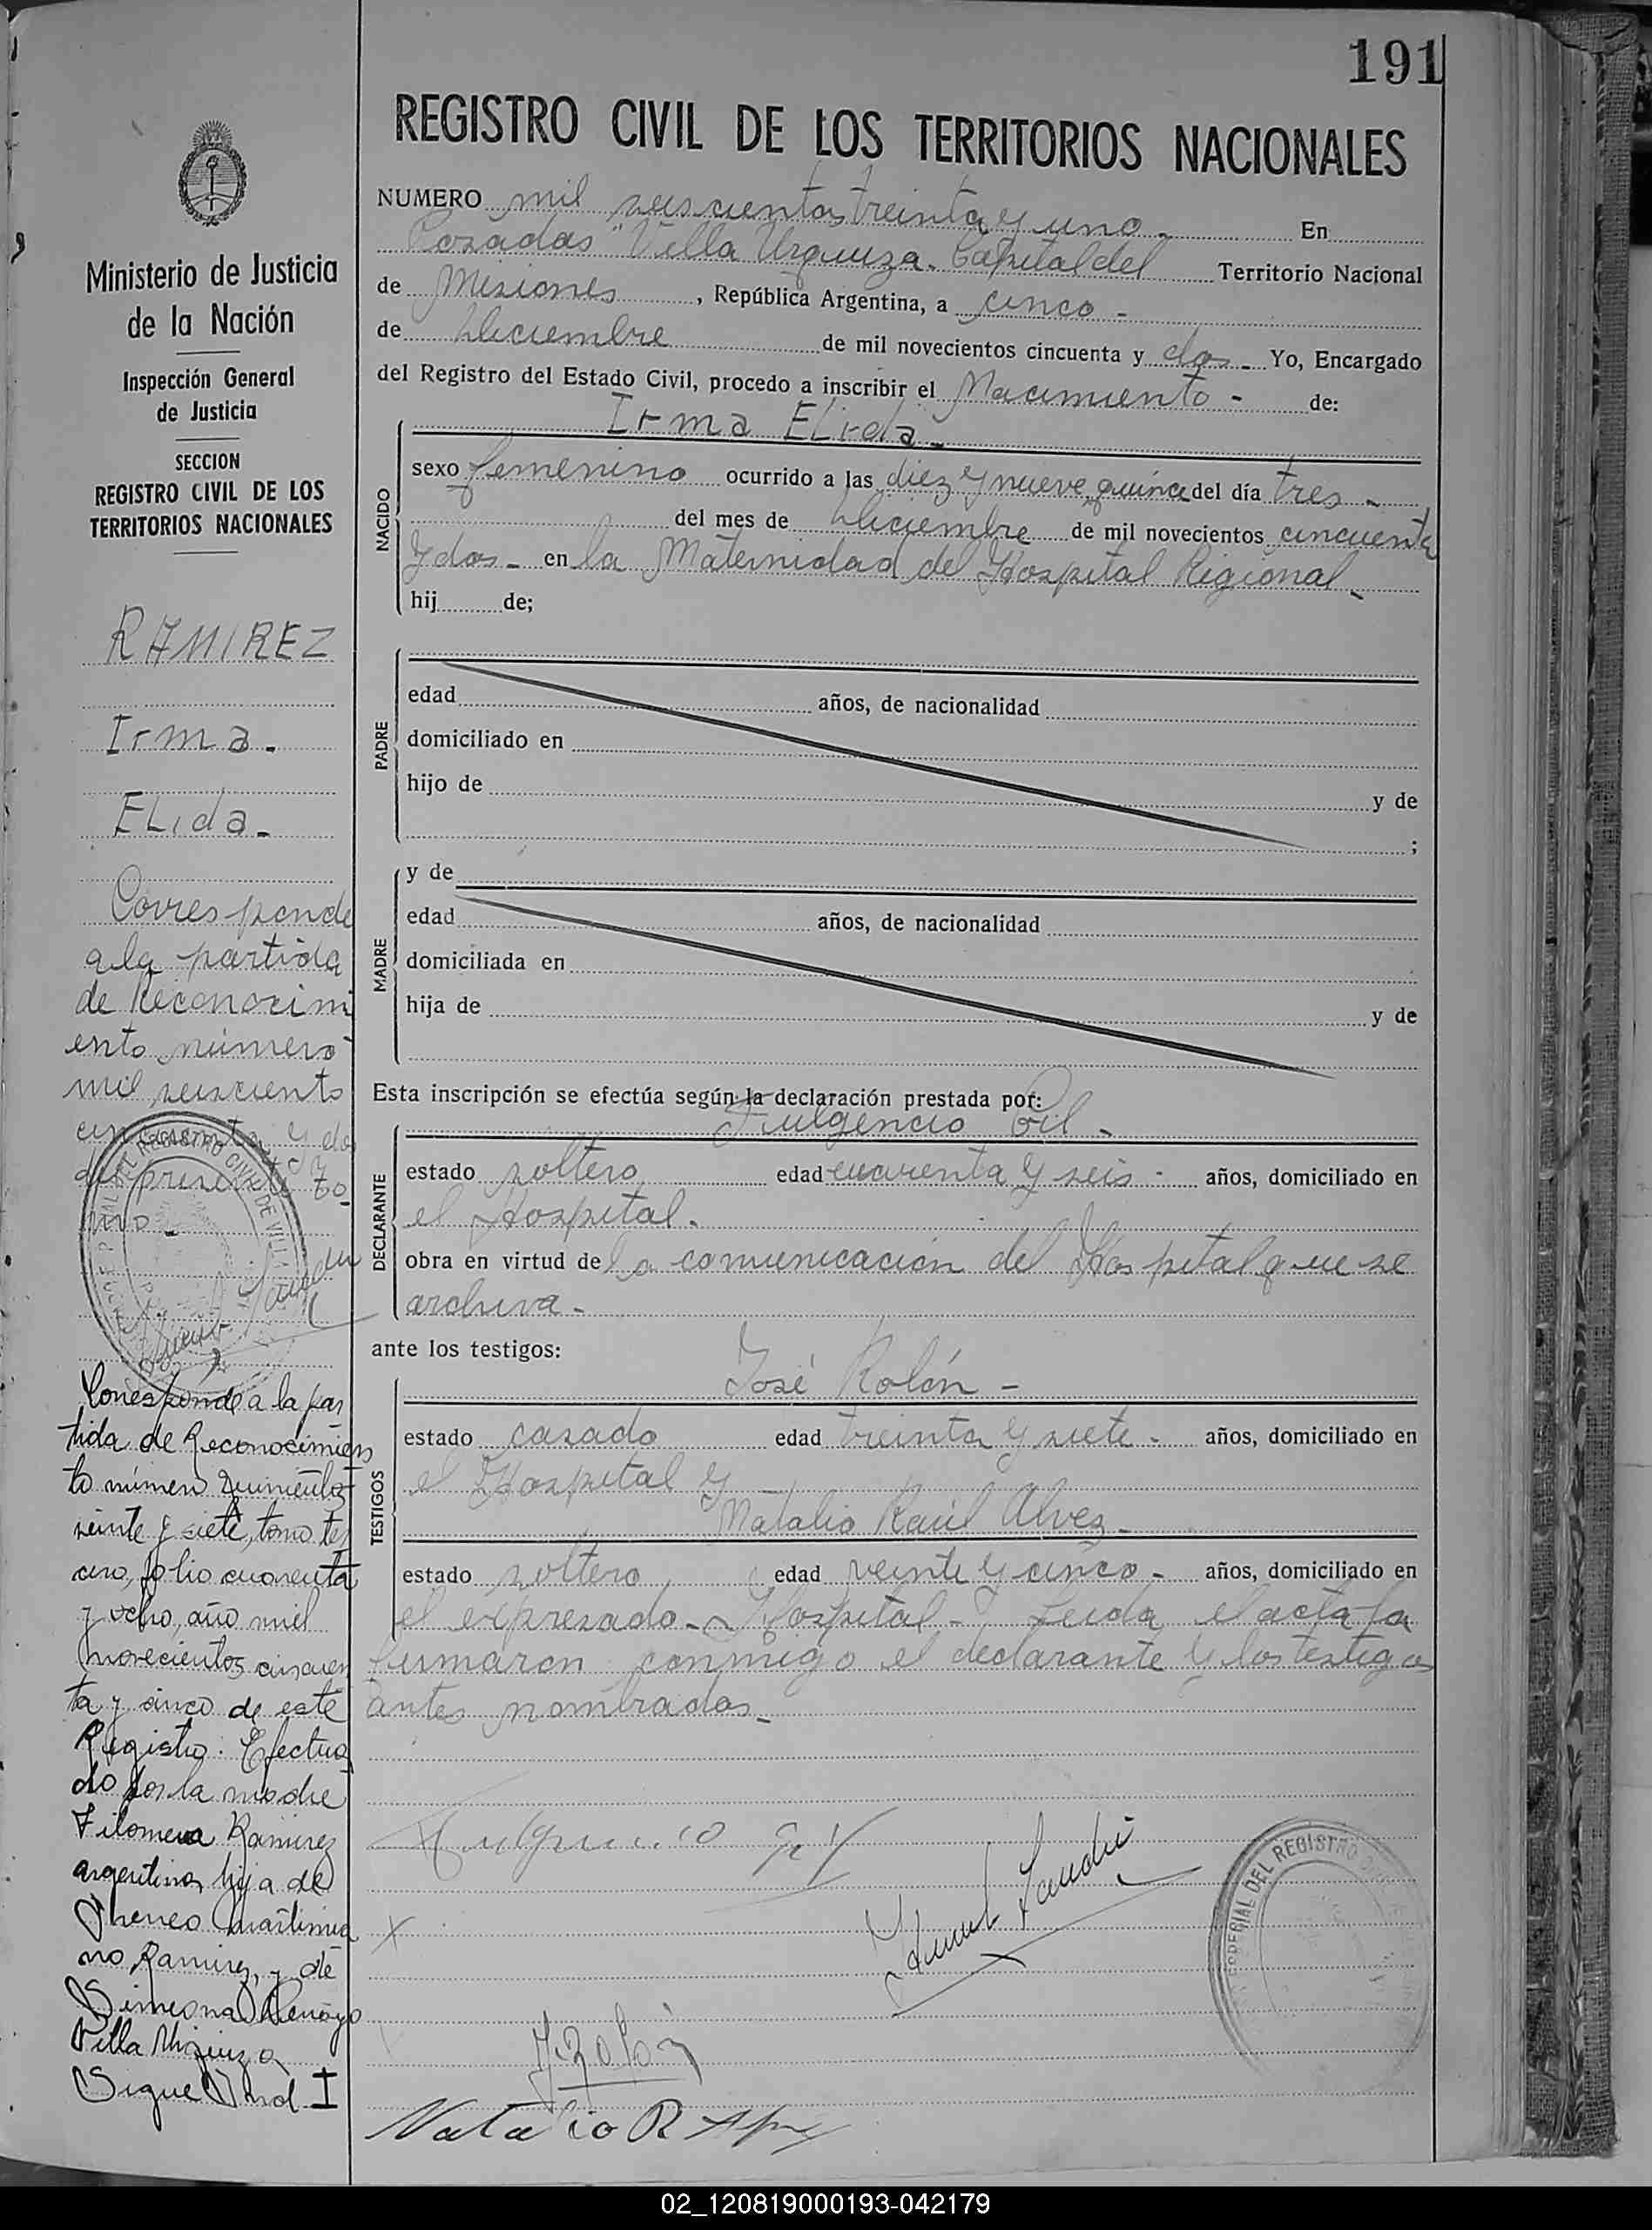 191
REGISTRO CIVIL DE LOS TERRITORIOS NACIONALES
Ministerio de Justicia
de la Nación
Inspección General
de Justicia
SECCION
REGISTRO CIVIL DE LOS
TERRITORIOS NACIONALES
RAMIREZ
Irma.
ELida.
Corresponde
a la partida
de Reconocimi
ento número
mil seiscento
cincuenta y dos
del presente To
mo.
Corresponde a la par
tida de Reconocimien
to número Quinientos
veinte y siete, tomo ter
cero, folio cuarenta
y ocho, año mil
novecientos cincuen
ta y cinco de este
Registro. Efectua
do por la madre
Filomena Ramirez
argentina hija de
Maximia
no Ramirez, y de
Simeona
Villa Urquiza
Sigue I
NUMERO mil seiscientos treinta y uno. En
Posadas "Villa Urquiza. Capital del Territorio Nacional
de Misiones, República Argentina, a cinco -
de Diciembre de mil novecientos cincuenta y dos - Yo, Encargado
del Registro del Estado Civil, procedo a inscribir el Nacimiento - de:
Irma ELida.
NACIDO
sexo femenino ocurrido a las diez y nueve quince del día tres -
del mes de Diciembre de mil novecientos cincuenta
y dos - en la Maternidad del Hospital Regional -
hij de;
PADRE
edad años, de nacionalidad
domiciliado en
hijo de y de
;
MADRE
y de
edad años, de nacionalidad
domiciliada en
hija de y de
Esta inscripción se efectúa según la declaración prestada por:
DECLARANTE
Fulgencio Gil -
estado soltero edad cuarenta y seis - años, domiciliado en
el Hospital.
obra en virtud de la comunicación del Hospital que se
archiva -
ante los testigos:
TESTIGOS
José Rolón -
estado casado edad treinta y siete - años, domiciliado en
el Hospital y
Natalio Raúl Alvez -
estado soltero edad veinte y cinco - años, domiciliado en
el expresado - Hospital - Leida el acta la
firmaron conmigo el declarante y los testigos
antes nombrados -
Fulgencio Gil
J. Rolón
Natalio R
DEL REGISTRO
02_120819000193-042179